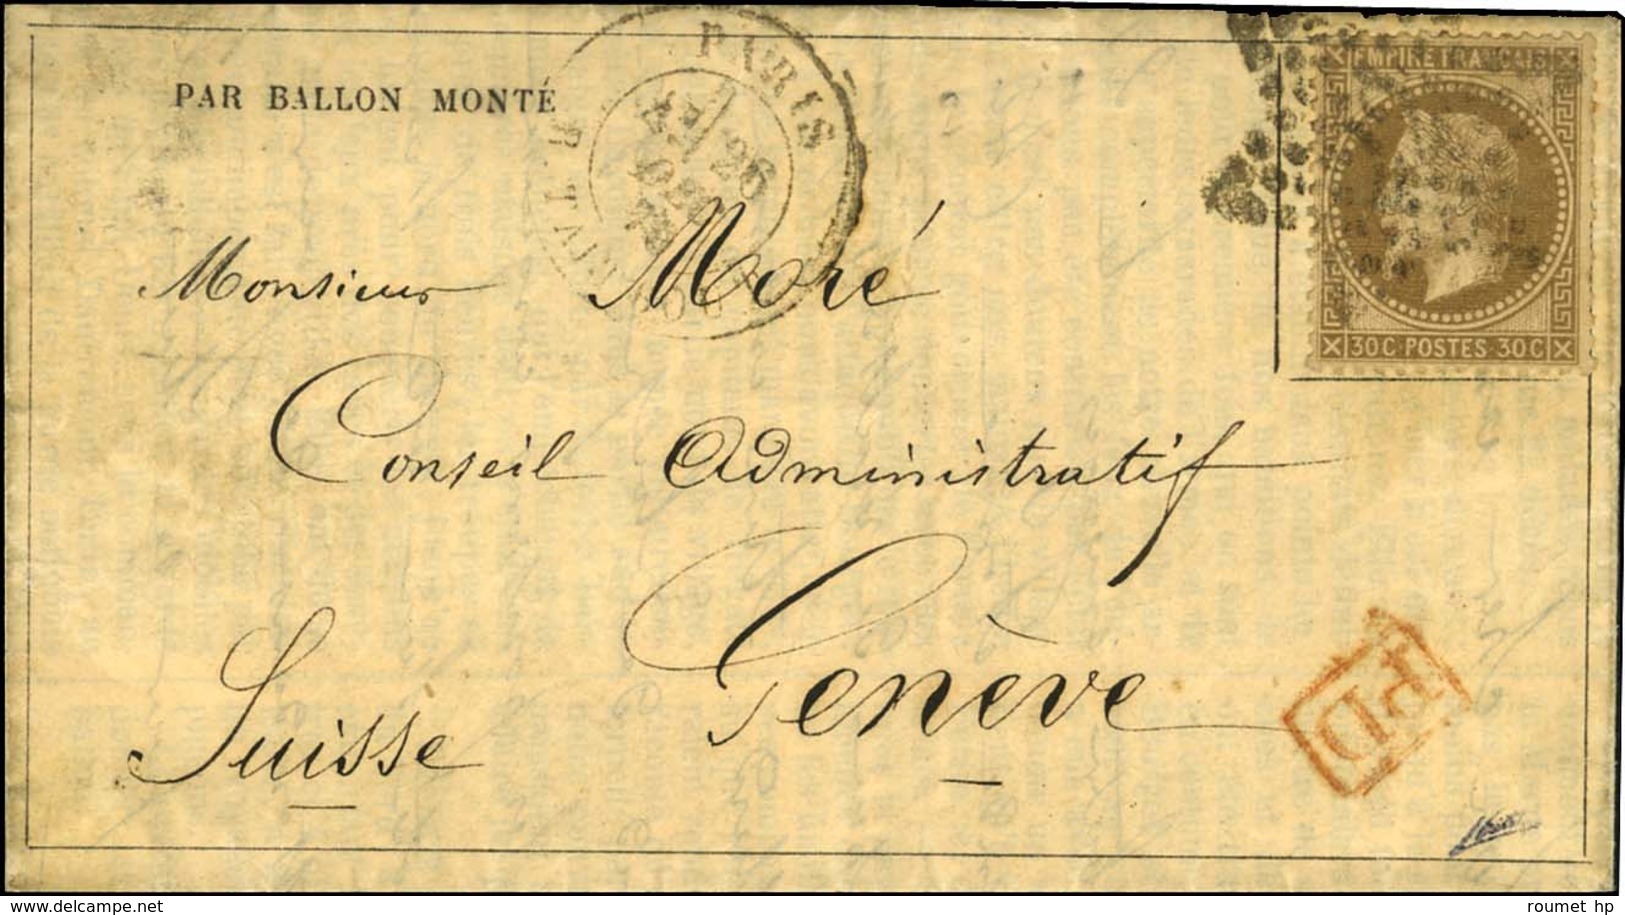 PAR BALLON MONTÉ
PARIS
26
EMPIRE FRANÇAIS
30C POSTES 30C
Monsieur Moré
Conseil Administratif
Genève
Suisse
PD
www.delcampe.net
roumet hp